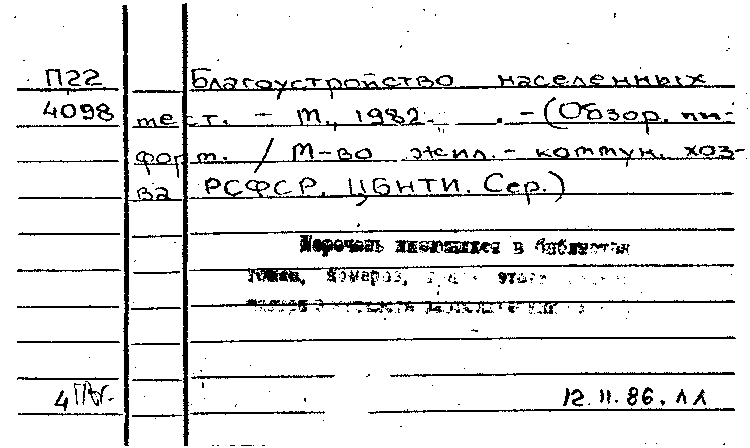 П22 Благоустройство населенных
4098 мест. - М., 1982. . - (Обзор. ин-
форм. / М-во жил.- коммун. хоз-
ва РСФСР. ЦБНТИ. Сер.)
Перечень имеющихся в библиотеке
томов, номеров, этого
4 12.11.86. лл